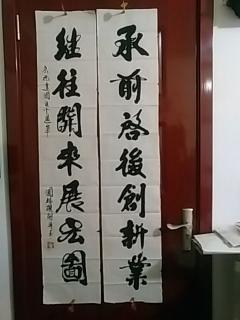 承前啓後創新業
继往開来展宏圖